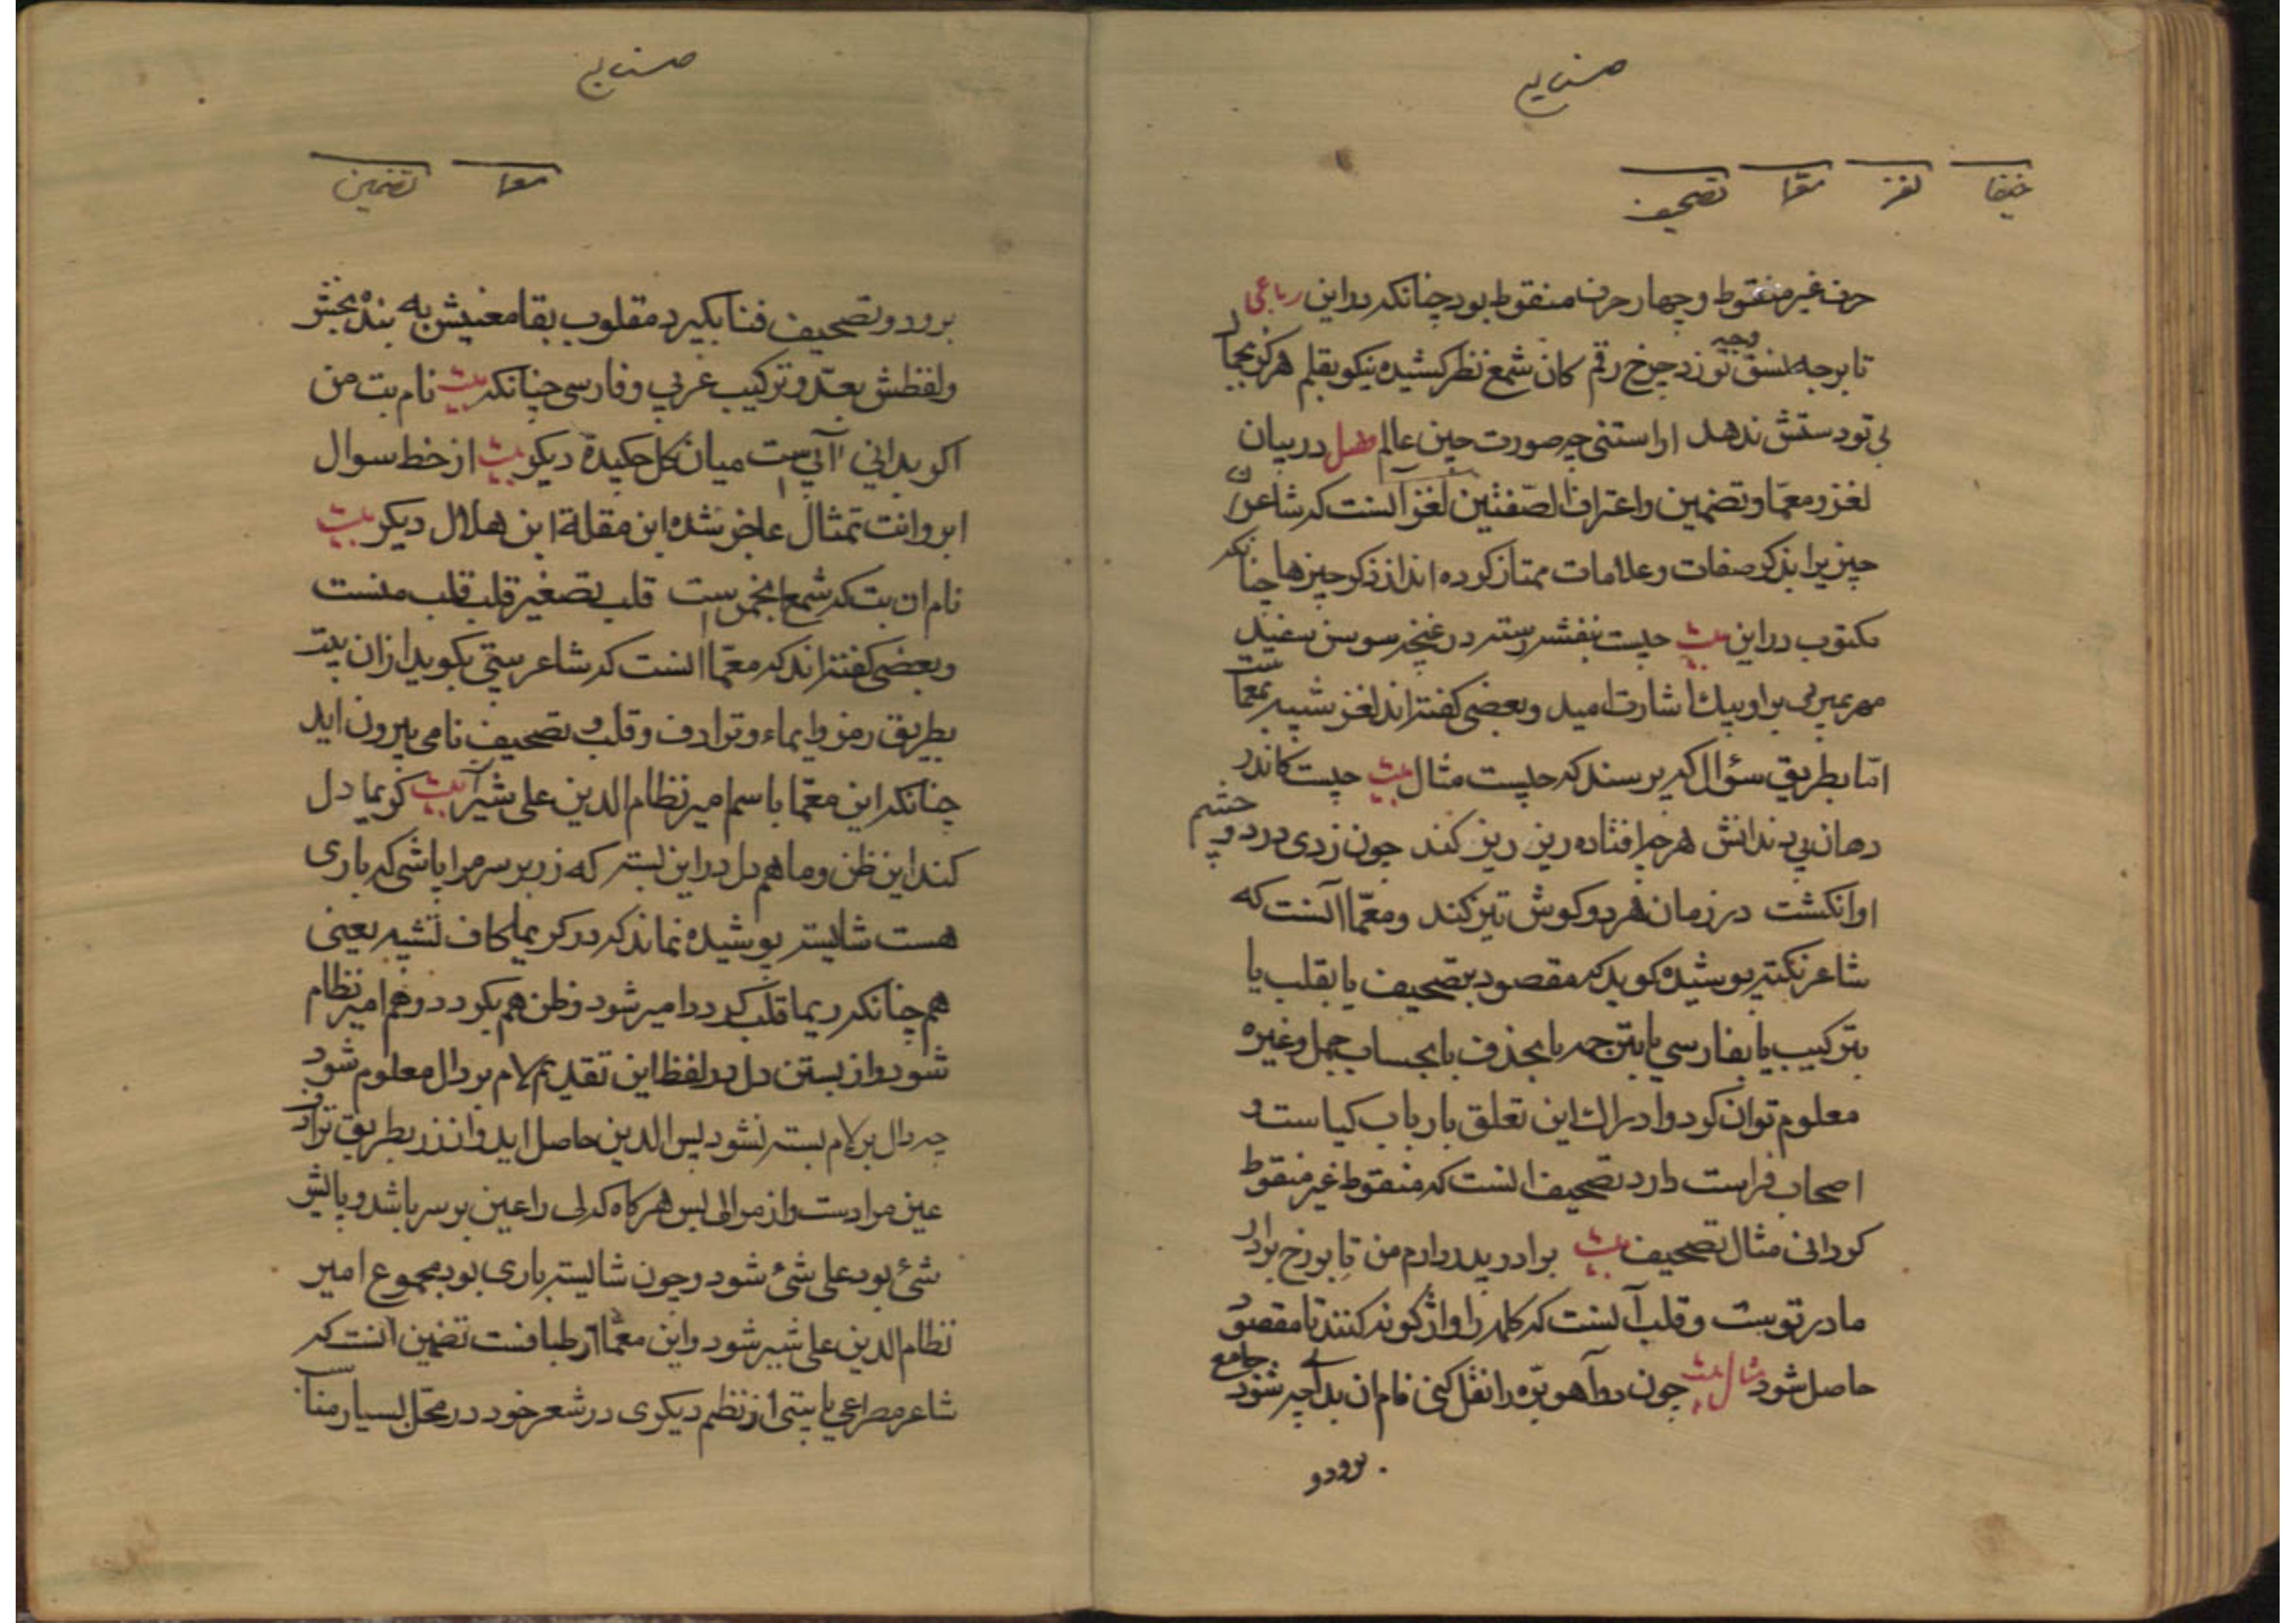 صنایع
خیفا لغز معما تصحیف
حرف غیر منقوط و چهار حرف منقوط بود چنانکه در این رباعی
تا بر وجه نسق تو زد چرخ رقم کان شمع نظر کشیده نیکو بقلم هرکز بجمال
بی تو دستش ندهد اراستنی چه صورت حین عالم فصل در بیان
لغز و معمّا و تضمین و اعتراف الصّفتین لغز آنست که شاعر
چیزیرا بذکر صفات و علامات ممتاز کرده اند از ذکر چیزها چنانکه
مکتوب در این بیت چیست بنفشه رسته در غنچه سوسن سفید
مهر بر او پیک اشارت امید و بعضی کفته اند لغز شبیه بمعماست
امّا بطریق سؤال که پرسند که چیست مثال بیت چیست کاندر
دهان بی دندانش هرچه افتاده ریز ریز کند چون زدی در دو چشم
او انکشت در زمان هر دو کوش تیز کند و معمّا آنست که
شاعر نکته پوشیده کوید که مقصود بتصحیف یا بقلب یا
بترکیب یا بفارسی یا بترجمه یا بحذف یا بحساب جمل و غیره
معلوم توان کرد و ادراک این تعلق بارباب کیاست و
اصحاب فراست دارد تصحیف انست که منقوط غیر منقوط
کردانی مثال تصحیف بیت برادر پدر دارم من تا بوزخ برادر
مادر تو بیت و قلب آنست که کلمه را واژکونه کنند تا مقصود
حاصل شود مثال بیت چون دو آهو برّه را نقل کنی نام ان بداچه شود جامع
برود و
صنایع
معما تضمین
برود و تصحیف فنا بکیرد مقلوب بقا معنیش به بنده بخش
و لفظش بعدّ و ترکیب عربی و فارسی چنانکه بیت نام بت من
اکر بدانی آبی ست میان کل چکیده دیکر بیت از خط سوال
ابروانت تمثال عاجز شده ابن مقلة ابن هلال دیکر بیت
نام ان بت که شمع انجمن است قلب تصغیر قلب قلب منست
و بعضی کفته اند که معمّا انست که شاعر بیتی بکوید از ان بیت
بطریق رمز و ایماء و ترادف و قلب و تصحیف نامی بیرون اید
چنانکه این معمّا باسم امیر نظام الدین علی شیر آ بیت کریما دل
کند این ظن و ما هم دل در این بسته که زر بر سر مرا پاشی که باری
هست شایسته پوشیده نماند که در کریما کاف تشبیه یعنی
هم چنانکه ریما قلب کردد امیر شود و ظن هم بکردد و هم امیر نظام
شود و از بستن دل در لفظ این تقدیم لام بر دال معلوم شود
چه دال بر لام بسته نشود پس الدین حاصل اید و از زر بطریق ترادف
عین مرادست و از مرا لی پس هرکاه که لی را عین بر سر باشد و پایش
شئ بود علی شئ شود و چون شایسته باری بود مجموع امیر
نظام الدین علی شیر شود و این معمّا از طبافنت تضمین آنست که
شاعر مصراعی یا بیتی از نظم دیکری در شعر خود در محل بسیار مناسب